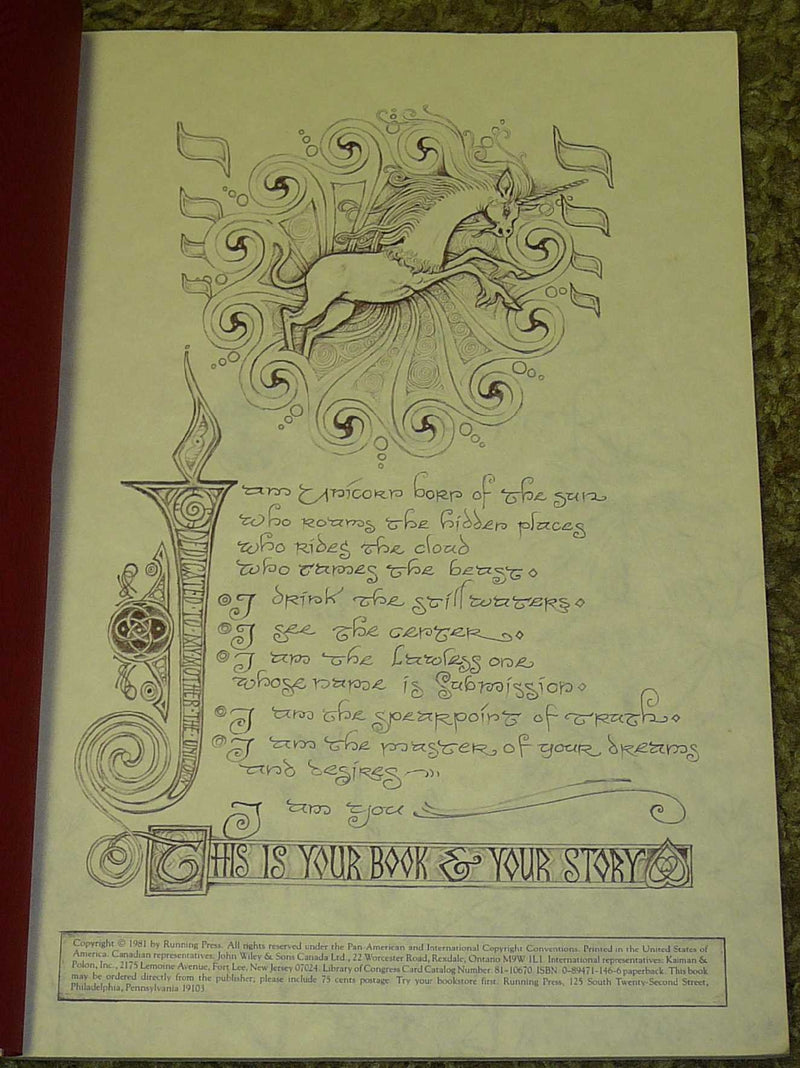 I am Unicorn born of the sun
who roams the hidden places
who rides the cloud
who tames the beast
I drink the still waters
I see the center
I am the lawless one
whose name is Submission
I am the spearpoint of truth
I am the master of your dreams
and desires
I am you
DEDICATED TO MY MOTHER THE UNICORN
THIS IS YOUR BOOK & YOUR STORY
Copyright © 1981 by Running Press. All rights reserved under the Pan-American and International Copyright Conventions. Printed in the United States of
America. Canadian representatives: John Wiley & Sons Canada Ltd., 22 Worcester Road, Rexdale, Ontario M9W 1L1. International representatives: Kaiman &
Polon, Inc., 2175 Lemoine Avenue, Fort Lee, New Jersey 07024. Library of Congress Card Catalog Number: 81-10670. ISBN: 0-89471-146-6 paperback. This book
may be ordered directly from the publisher; please include 75 cents postage. Try your bookstore first. Running Press, 125 South Twenty-Second Street,
Philadelphia, Pennsylvania 19103.